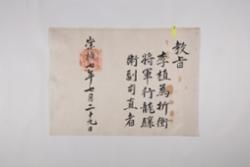 教旨
李植為折衝
將軍行龍驤
衛副司直者
崇禎七年七月二十九日